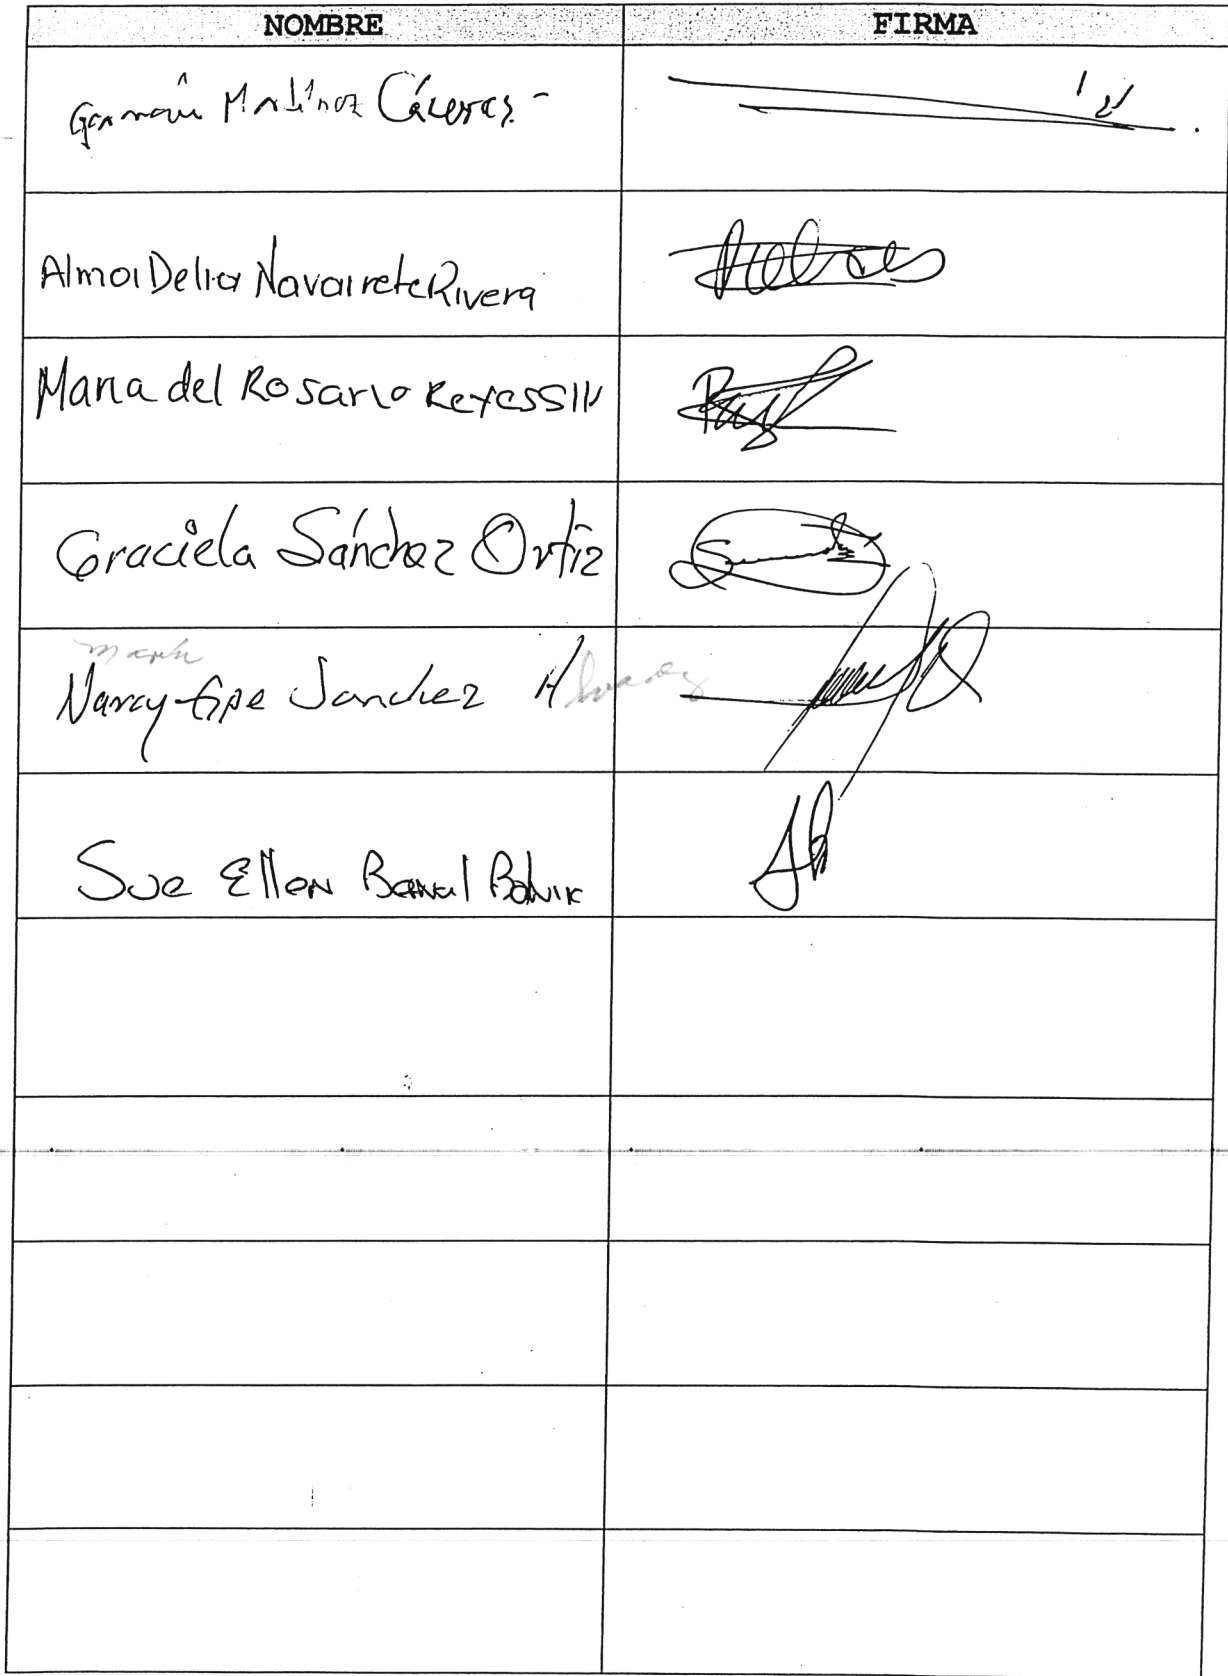 NOMBRE FIRMA
Germán Martínez Cáceres -
Alma Delia Navarrete Rivera
Maria del Rosario Reyes Silv
Graciela Sánchez Ortiz
Nancy Gpe Sanchez A
Sue Ellen Bernal Bolnik